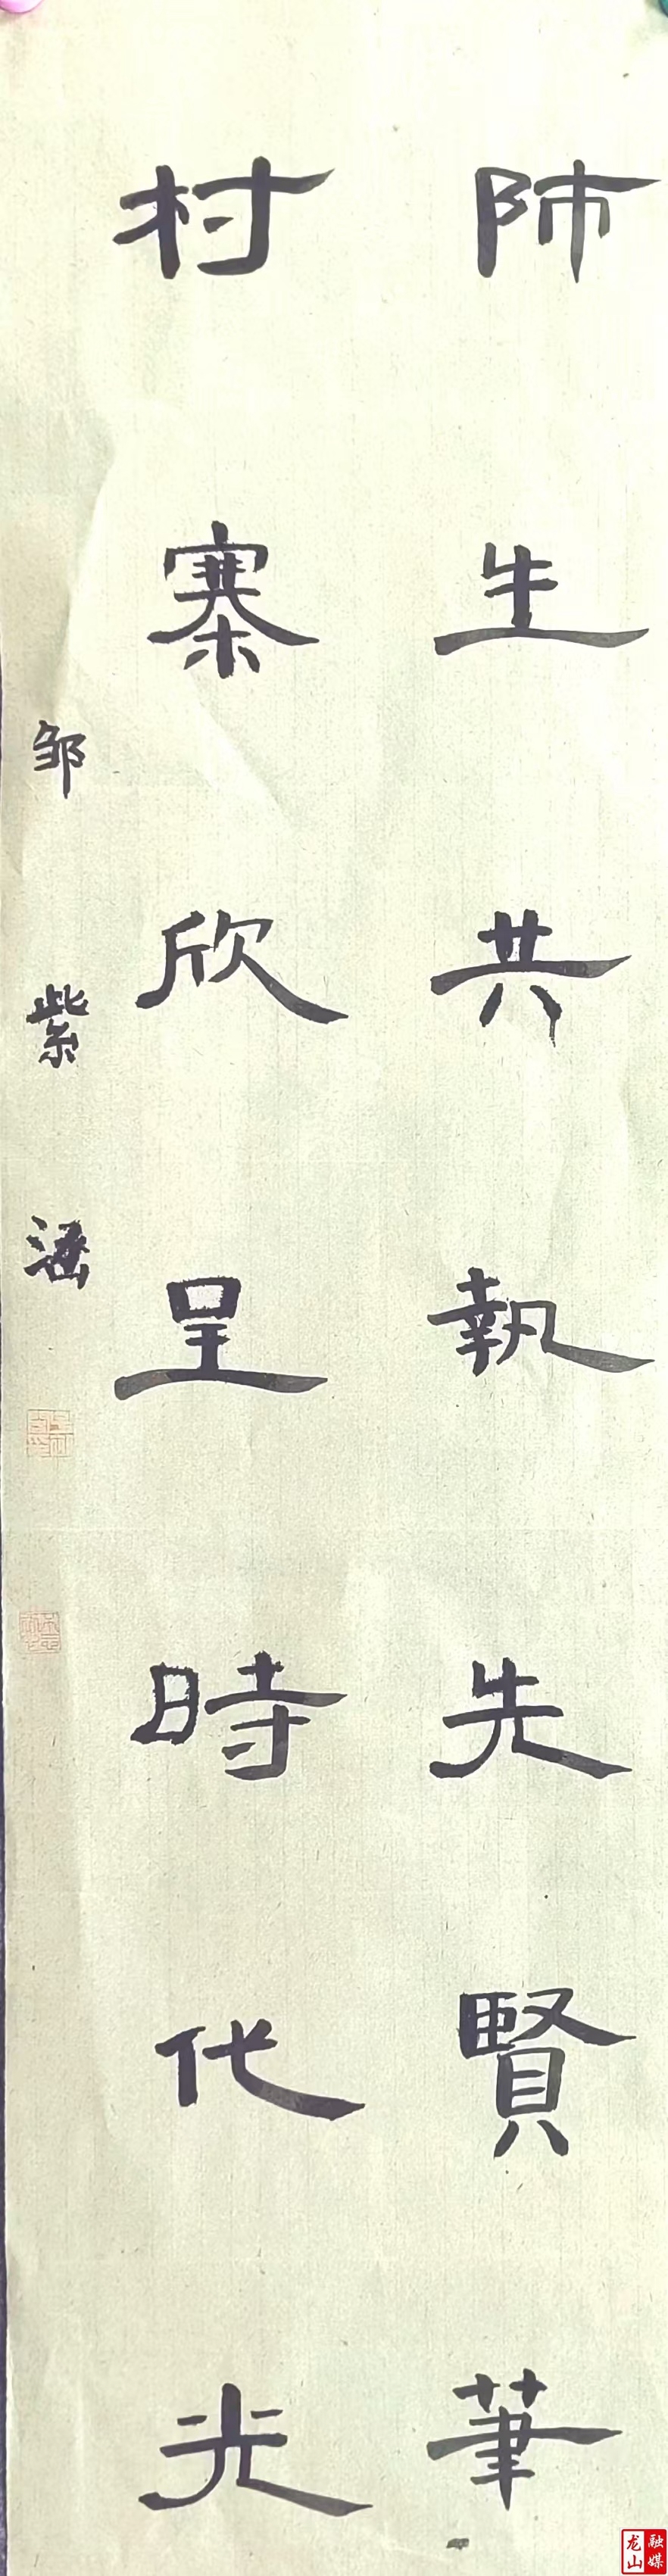 師生共執先賢筆
村寨欣呈時代光
邹紫涵
龙山融媒